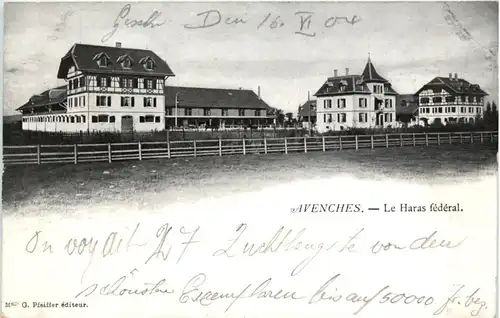 AVENCHES. — Le Haras fédéral.
Gesch. Den 16. VI 04
On voyait 27 Zuchthengste von den
schönsten Exemplaren bis auf 50000 fr. bez.
Mson G. Pfeiffer éditeur.